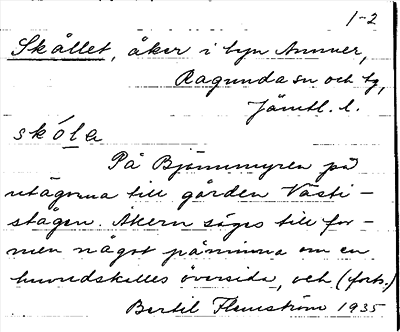 1-2
Skållet, åker i byn Ammer,
Ragunda sn och tg,
Jämtl. l.
skóla
På Björnmyren på
utägorna till gården Västi-
stagen. Åkern säges till for-
men något påminna om en
huvudskalles översida, och (forts.)
Bertil Flemström 1935